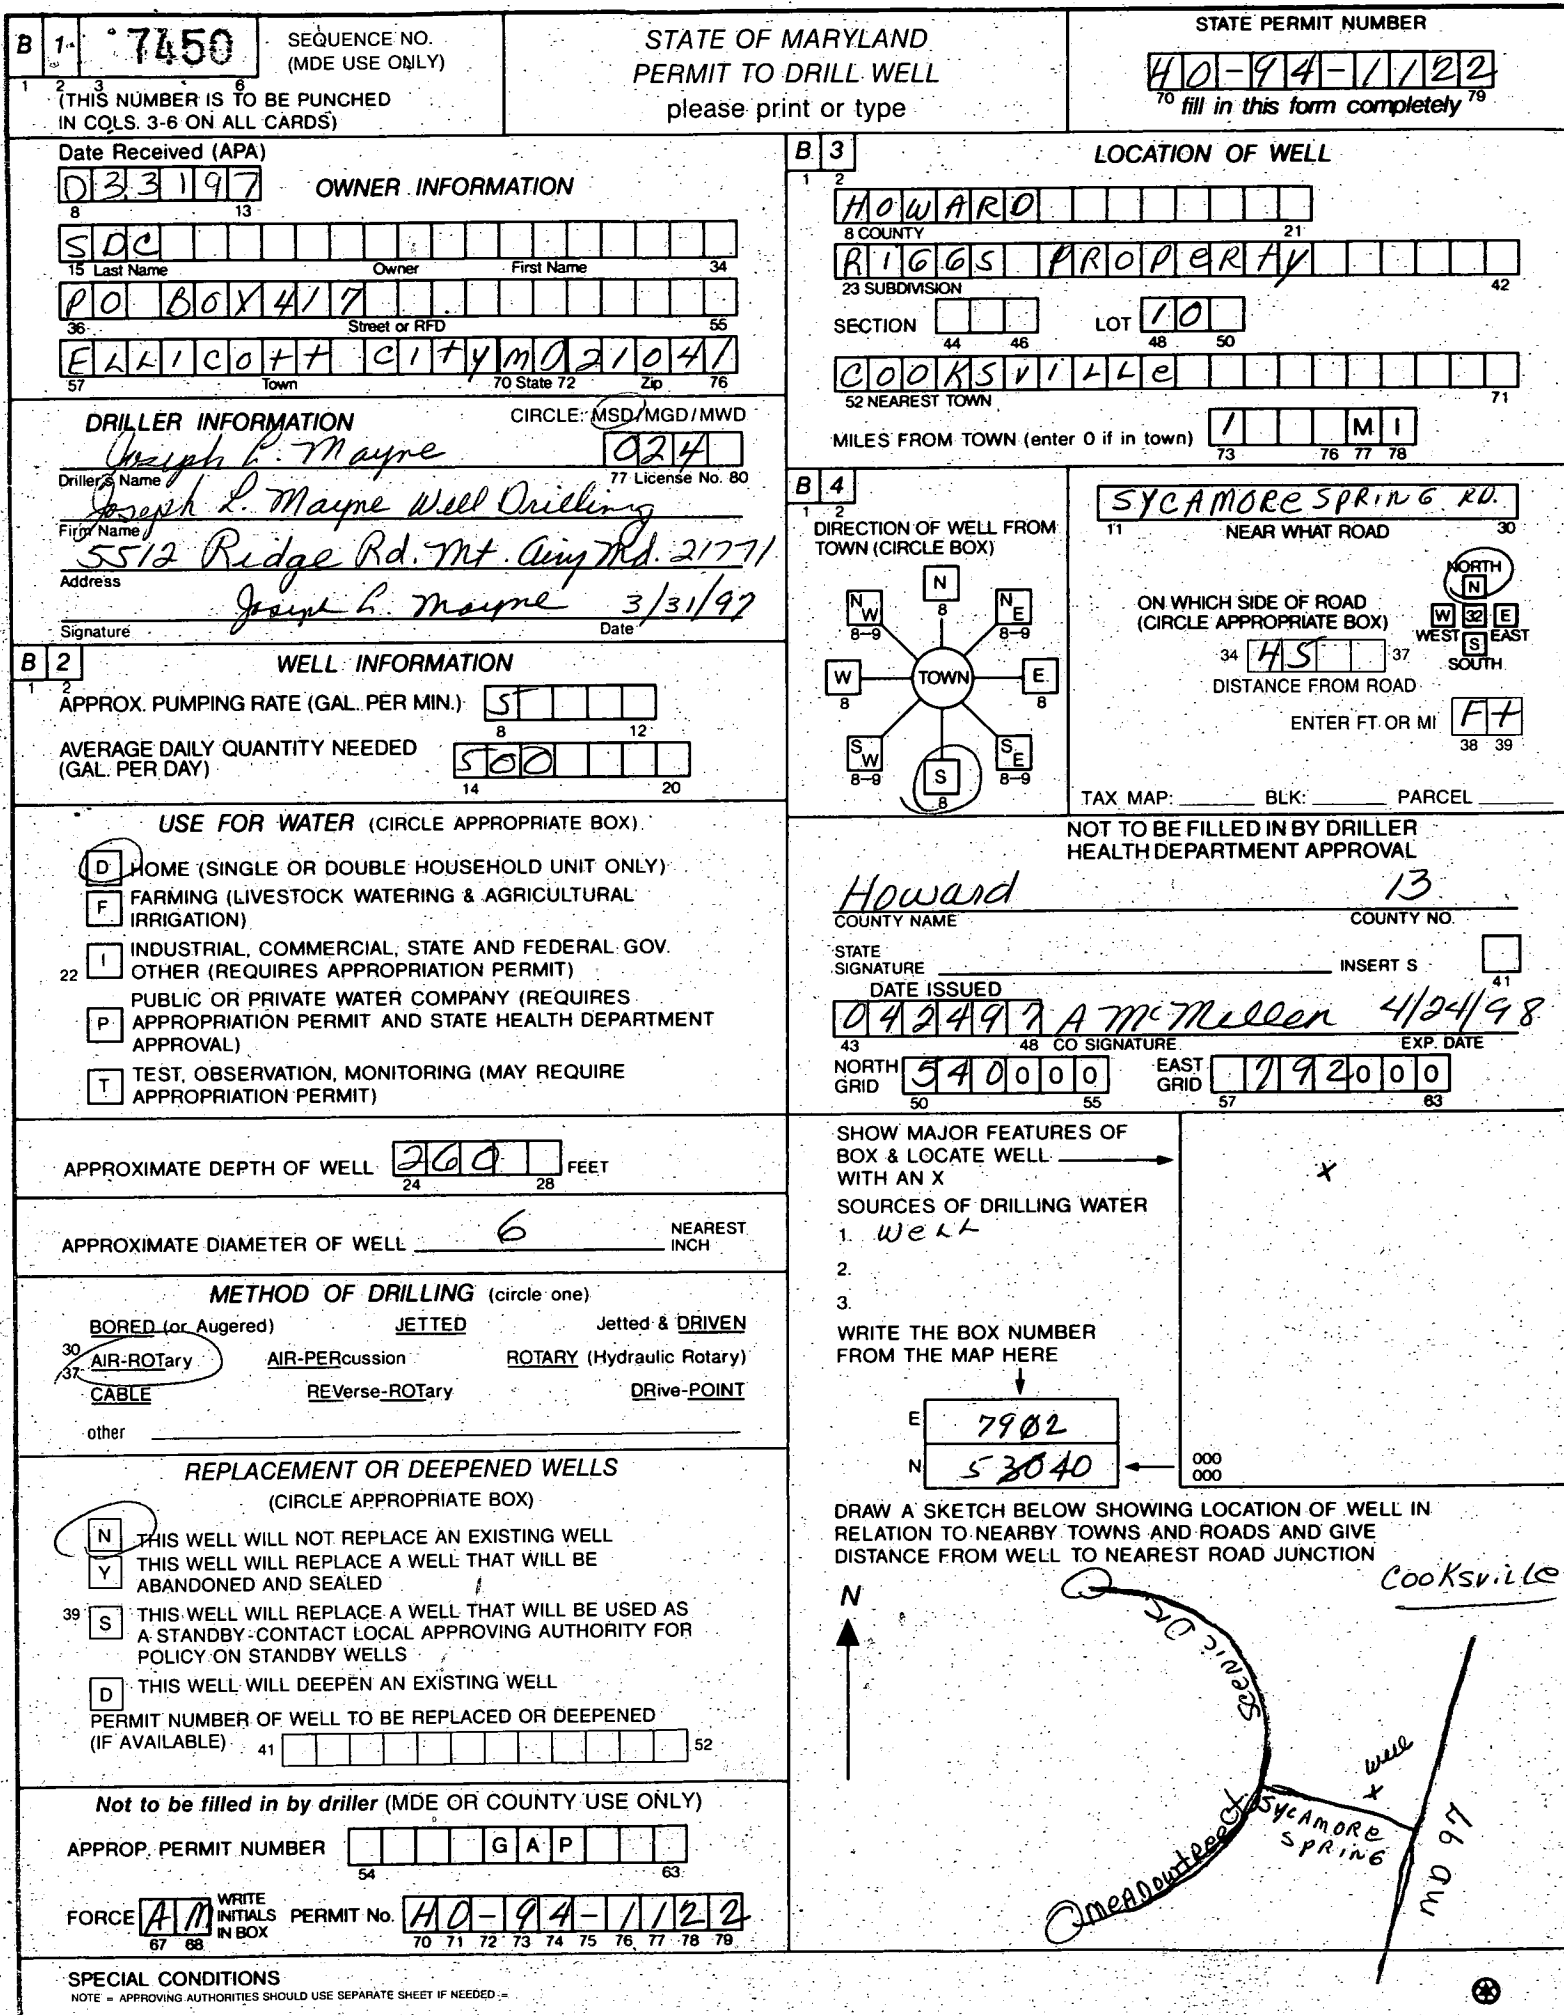 B 1 7450 SEQUENCE NO. (MDE USE ONLY)
1 2 3 6
(THIS NUMBER IS TO BE PUNCHED
IN COLS. 3-6 ON ALL CARDS)
STATE OF MARYLAND
PERMIT TO DRILL WELL
please print or type
STATE PERMIT NUMBER
HO-94-1122
70 fill in this form completely 79
Date Received (APA)
033197
8 13
OWNER INFORMATION
SDC
15 Last Name Owner First Name 34
PO BOX 417
36 Street or RFD 55
ELLICOtt CityMD21041
57 Town 70 State 72 Zip 76
DRILLER INFORMATION
CIRCLE: MSD/MGD/MWD
Joseph L. Mayne 024
Driller's Name 77 License No. 80
Joseph L. Mayne Well Drilling
Firm Name
5512 Ridge Rd. Mt. Airy Md. 21771
Address
Joseph L. Mayne 3/31/97
Signature Date
B 2 WELL INFORMATION
1 2
APPROX. PUMPING RATE (GAL. PER MIN.) 5
8 12
AVERAGE DAILY QUANTITY NEEDED
(GAL. PER DAY) 500
14 20
USE FOR WATER (CIRCLE APPROPRIATE BOX)
D HOME (SINGLE OR DOUBLE HOUSEHOLD UNIT ONLY)
F FARMING (LIVESTOCK WATERING & AGRICULTURAL
IRRIGATION)
22 I INDUSTRIAL, COMMERCIAL, STATE AND FEDERAL GOV.
OTHER (REQUIRES APPROPRIATION PERMIT)
P PUBLIC OR PRIVATE WATER COMPANY (REQUIRES
APPROPRIATION PERMIT AND STATE HEALTH DEPARTMENT
APPROVAL)
T TEST, OBSERVATION, MONITORING (MAY REQUIRE
APPROPRIATION PERMIT)
APPROXIMATE DEPTH OF WELL 260 FEET
24 28
APPROXIMATE DIAMETER OF WELL 6 NEAREST
INCH
METHOD OF DRILLING (circle one)
BORED (or Augered) JETTED Jetted & DRIVEN
30 AIR-ROTary AIR-PERcussion ROTARY (Hydraulic Rotary)
37 CABLE REVerse-ROTary DRive-POINT
other
REPLACEMENT OR DEEPENED WELLS
(CIRCLE APPROPRIATE BOX)
N THIS WELL WILL NOT REPLACE AN EXISTING WELL
Y THIS WELL WILL REPLACE A WELL THAT WILL BE
ABANDONED AND SEALED
39 S THIS WELL WILL REPLACE A WELL THAT WILL BE USED AS
A STANDBY-CONTACT LOCAL APPROVING AUTHORITY FOR
POLICY ON STANDBY WELLS
D THIS WELL WILL DEEPEN AN EXISTING WELL
PERMIT NUMBER OF WELL TO BE REPLACED OR DEEPENED
(IF AVAILABLE) 41 52
Not to be filled in by driller (MDE OR COUNTY USE ONLY)
APPROP. PERMIT NUMBER GAP
54 63
FORCE AM WRITE INITIALS IN BOX PERMIT No. HO-94-1122
67 68 70 71 72 73 74 75 76 77 78 79
SPECIAL CONDITIONS
NOTE = APPROVING AUTHORITIES SHOULD USE SEPARATE SHEET IF NEEDED =
B 3 LOCATION OF WELL
1 2
HOWARD
8 COUNTY 21
RIGGS PROPeRty
23 SUBDIVISION 42
SECTION LOT 10
44 46 48 50
COOKSViLLe
52 NEAREST TOWN 71
MILES FROM TOWN (enter 0 if in town) 1 MI
73 76 77 78
B 4
1 2
DIRECTION OF WELL FROM
TOWN (CIRCLE BOX)
N
8
NW NE
8-9 8-9
W TOWN E
8 8
SW SE
8-9 8-9
S
8
SYCAMORe SPRiNG RD.
11 NEAR WHAT ROAD 30
ON WHICH SIDE OF ROAD
(CIRCLE APPROPRIATE BOX)
NORTH
N
W 32 E
WEST S EAST
SOUTH
34 45 37
DISTANCE FROM ROAD
ENTER FT OR MI Ft
38 39
TAX MAP: BLK: PARCEL
NOT TO BE FILLED IN BY DRILLER
HEALTH DEPARTMENT APPROVAL
Howard 13
COUNTY NAME COUNTY NO.
STATE
SIGNATURE INSERT S
41
DATE ISSUED
042497 A McMillen 4/24/98
43 48 CO SIGNATURE EXP. DATE
NORTH GRID 540000 EAST GRID 792000
50 55 57 63
SHOW MAJOR FEATURES OF
BOX & LOCATE WELL
WITH AN X
X
SOURCES OF DRILLING WATER
1. WeLL
2.
3.
WRITE THE BOX NUMBER
FROM THE MAP HERE
E 7902
N 53040
000
000
DRAW A SKETCH BELOW SHOWING LOCATION OF WELL IN
RELATION TO NEARBY TOWNS AND ROADS AND GIVE
DISTANCE FROM WELL TO NEAREST ROAD JUNCTION
CooKsviLLe
N
Scenic DR
well
X
SYCAMORE
SPRiNG
MeADowtRee Ct
97